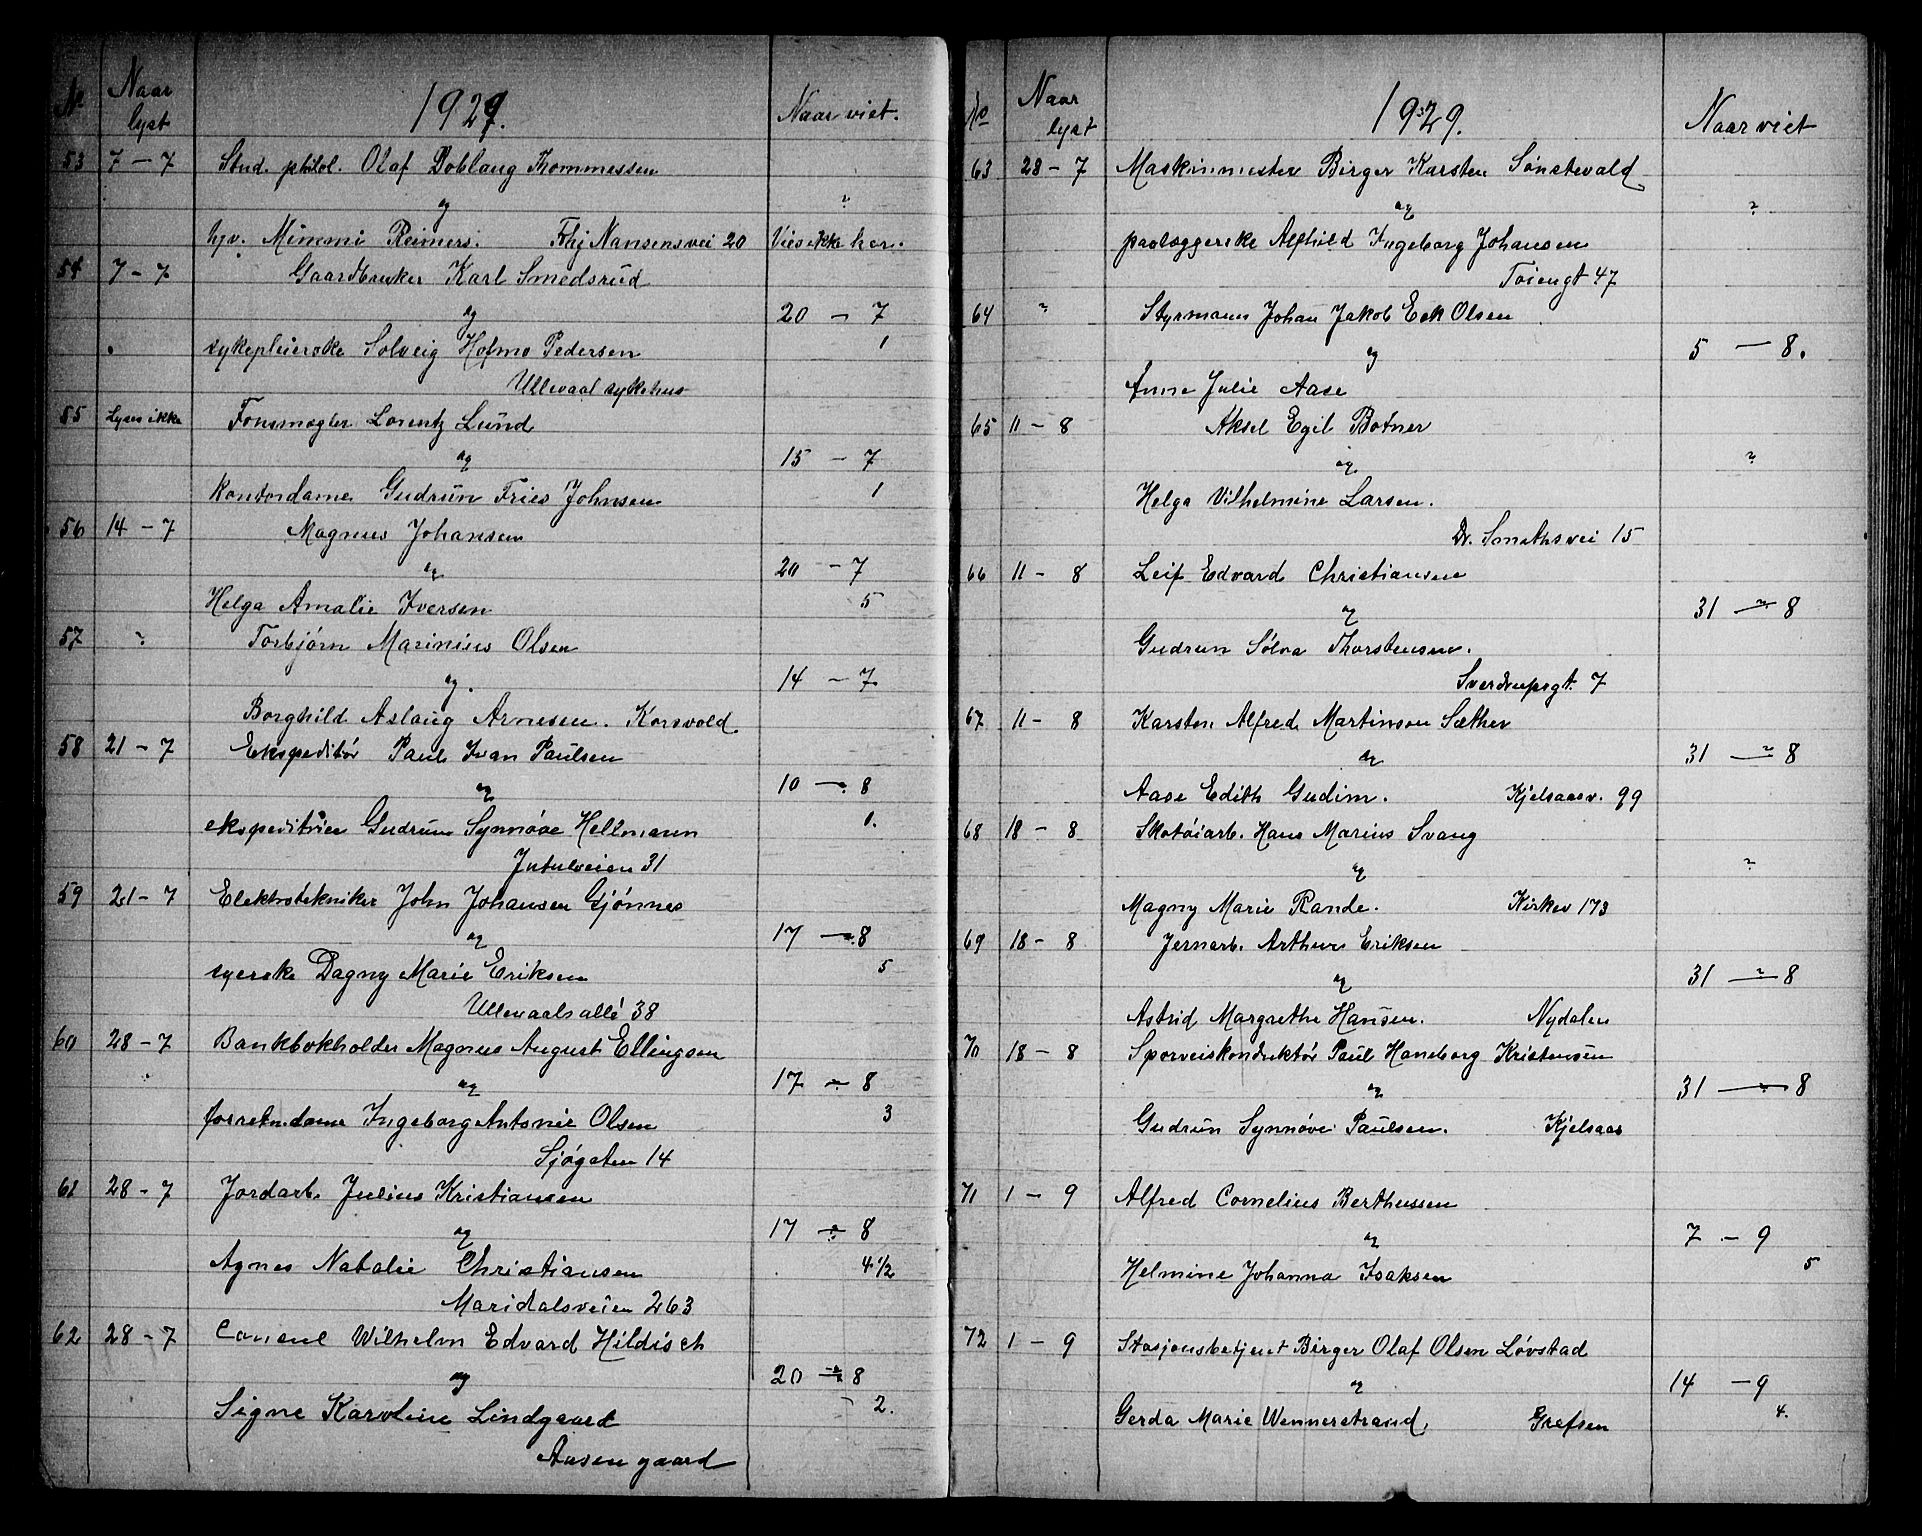 No Naar lyst 1929. Naar viet.
53 7 – 7 Stud. philol. Olaf Doblaug Thommessen
og ?
hjv. Mimmi Reimers. Frhj Nansensvei 20 Vies ikke her.
54 7 – 7 Gaardbruker Karl Smedsrud
og 20 – 7
sykepleierske Solveig Hofmo Pedersen 1
Ullevaal sykehus
55 Lyses ikke Fonsmægler Lorentz Lund
og 15 – 7
Kontordame Gudrun Fries Johnsen 1
56 14 – 7 Magnus Johansen
og 20 – 7
Helga Amalie Iversen 5
57 " Torbjørn Marinius Olsen
og. 14 – 7
Borghild Aslaug Arnesen. Korsvold
58 21 – 7 Ekspeditør Paul Ivan Paulsen
og 10 – 8
ekspeditrice Gudrun Synnøve Hellmann 1.
Jutulveien 31
59 21 – 7 Elektrotekniker John Johansen Gjønnes
og 17 – 8
syerske Dagny Marie Eriksen 5
Ullevaalsallé 38
60 28 – 7 Bankbokholder Magnus August Ellingsen
og 17 – 8
forretn.dame Ingeborg Antonie Olsen 3
Sjøgaten 14
61 28 – 7 Jordarb. Julius Kristiansen
og 17 – 8
Agnes Natalie Christiansen 4 1/2
Maridalsveien 263
62 28 – 7 Consul Wilhelm Edvard Hildisch
og 20 – 8
Signe Karoline Lindgaard – 2.
Aasen gaard
No Naar lyst 1929. Naar viet
63 28 – 7 Maskinmester Birger Karsten Sønstevald
og ?
paalæggerske Alfhild Ingeborg Johansen
Tøiengt 47
64 " Styrmann Johan Jakob Eek Olsen
og 5 – 8.
Anne Julie Aase
65 11 – 8 Aksel Egil Botner
og ?
Helga Vilhelmine Larsen.
Dr. Smithsvei 15
66 11 – 8 Leif Edvard Christiansen
og 31 – 8
Gudrun Sølva Thorstensen.
Sverdrupsgt. 7
67 11 – 8 Karsten Alfred Martinson Sæther
og 31 – 8
Aase Edith Gudim. Kjelsaasv. 99
68 18 – 8 Skotøiarb. Hans Marius Svang
og ?
Magny Marie Rande. Kirkev 173
69 18 – 8 Jernarb. Arthur Eriksen
og 31 – 8
Astrid Margrethe Hansen. Nydalen
70 18 – 8 Sporveiskonduktør Paul Haneborg Kristensen
og 31 – 8
Gudrun Synnøve Paulsen. Kjelsaas
71 1 – 9 Alfred Cornelius Berthussen
og 7 – 9
Helmine Johanna Isaksen 5
72 1 – 9 Stasjonsbetjent Birger Olaf Olsen Løvstad
og 14 – 9
Gerda Marie Wennerstrand. Grefsen 4.